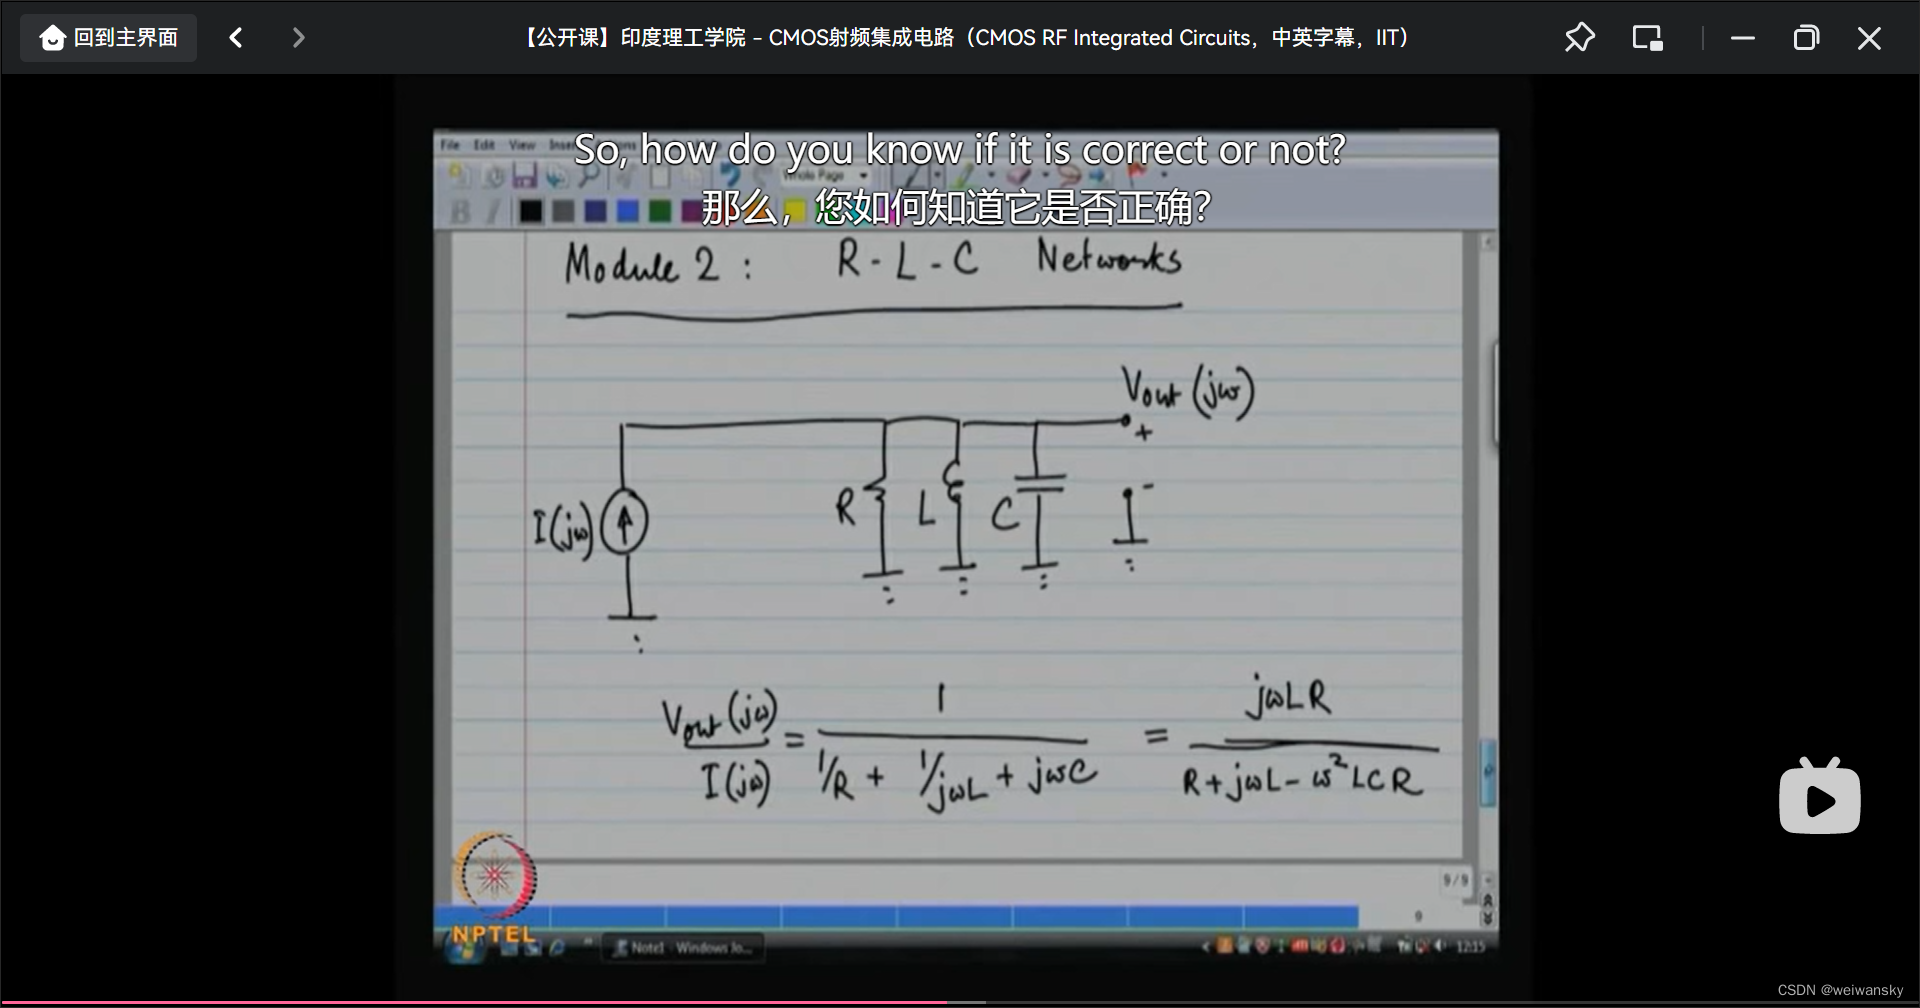 回到主界面
【公开课】印度理工学院 - CMOS射频集成电路（CMOS RF Integrated Circuits，中英字幕，IIT）
File Edit View
So, how do you know if it is correct or not?
Whole Page
那么，您如何知道它是否正确？
B I
Module 2 : R - L - C Networks
Vout (jω)
+
-
I(jω)
R L C
Vout (jω) / I(jω) = 1 / (1/R + 1/jωL + jωC) = jωLR / (R + jωL - ω²LCR)
9/9
9
NPTEL
Note1 - Windows Jo...
12:15
CSDN @weiwansky